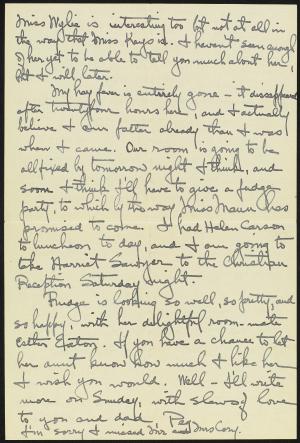 Miss Wylie is interesting too but not at all in
the way that Miss Kays is. I haven't seen enough
of her yet to be able to tell you much about her,
but I will later.
My hay fever is entirely gone - it disappeared
after twentyfour hours here, and I actually
believe I am fatter already than I was
when I came. Our room is going to be
all fixed by tomorrow night I think, and
soon I think I'll have to give a fudge
party, to which by the way Miss Mann has
promised to come. I had Helen Carson
to luncheon to day, and I am going to
take Harriet Sawyer to the Christian
Reception Saturday night.
Fudge is looking so well, so pretty, and
so happy, with her delightful room-mate
Esther Eaton. If you have a chance to let
her aunt know how much I like her
I wish you would. Well - I'll write
more on Sunday, with slews of love
to you and dad. Peg
I'm sorry I missed Mr. and Mrs Cory.